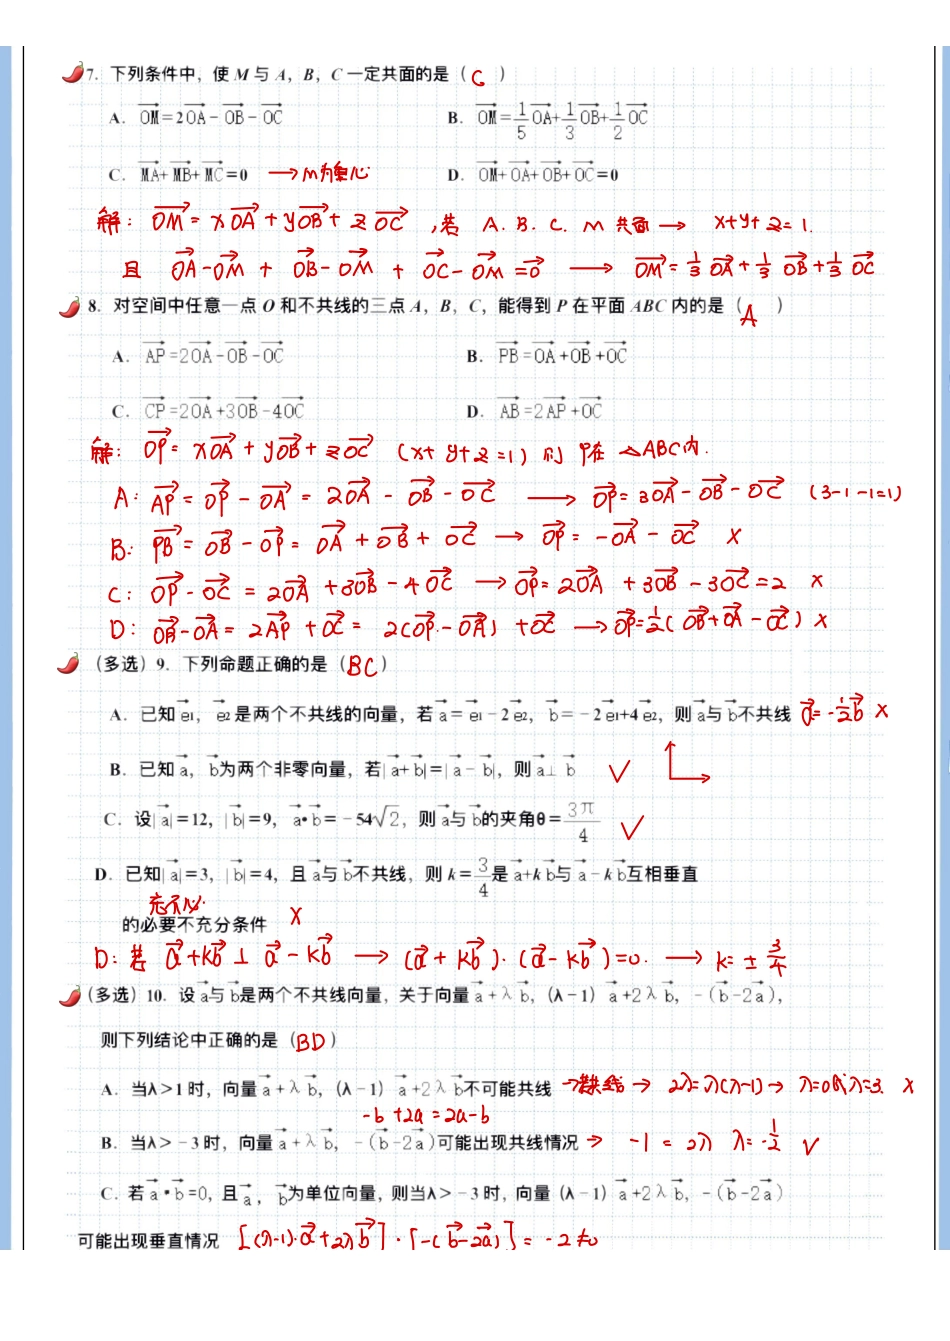 7. 下列条件中，使 M 与 A，B，C 一定共面的是（ C ）
A. OM=2OA-OB-OC B. OM=1/5OA+1/3OB+1/2OC
C. MA+MB+MC=0 →M为重心 D. OM+OA+OB+OC=0
解: OM=xOA+yOB+zOC，若 A.B.C.M 共面→ x+y+z=1.
且 OA-OM + OB-OM + OC-OM=0 → OM=1/3OA+1/3OB+1/3OC
8. 对空间中任意一点 O 和不共线的三点 A，B，C，能得到 P 在平面 ABC 内的是（ A ）
A. AP=2OA-OB-OC B. PB=OA+OB+OC
C. CP=2OA+3OB-4OC D. AB=2AP+OC
解: OP=xOA+yOB+zOC (x+y+z=1) 则 P在△ABC内.
A: AP=OP-OA=2OA-OB-OC → OP=3OA-OB-OC (3-1-1=1)
B: PB=OB-OP=OA+OB+OC → OP=-OA-OC ×
C: OP-OC=2OA+3OB-4OC → OP=2OA+3OB-3OC=2 ×
D: OB-OA=2AP+OC=2(OP-OA)+OC → OP=1/2(OB+OA-OC) ×
（多选）9. 下列命题正确的是（BC）
A. 已知 e1，e2 是两个不共线的向量，若 a=e1-2e2，b=-2e1+4e2，则 a与 b不共线 a=-1/2b ×
B. 已知 a，b为两个非零向量，若|a+b|=|a-b|，则 a⊥b ✓
C. 设|a|=12，|b|=9，a•b=-54√2，则 a与 b的夹角θ=3π/4 ✓
D. 已知|a|=3，|b|=4，且 a与 b不共线，则 k=3/4是 a+kb与 a-kb互相垂直
充不必
的必要不充分条件 ×
D: 若 a+kb⊥a-kb → (a+kb)·(a-kb)=0. → k=±3/4
（多选）10. 设 a与 b是两个不共线向量，关于向量 a+λb，(λ-1)a+2λb，-(b-2a)，
则下列结论中正确的是（BD）
A. 当λ>1 时，向量 a+λb，(λ-1)a+2λb不可能共线 →若共线→ 2λ=λ(λ-1)→ λ=0或λ=3. ×
-b+2a=2a-b
B. 当λ>-3 时，向量 a+λb，-(b-2a)可能出现共线情况→ -1=2λ λ=-1/2 ✓
C. 若 a•b=0，且 a，b为单位向量，则当λ>-3 时，向量 (λ-1)a+2λb，-(b-2a)
可能出现垂直情况 [(λ-1)·a+2λb]·[-(b-2a)]=-2≠0